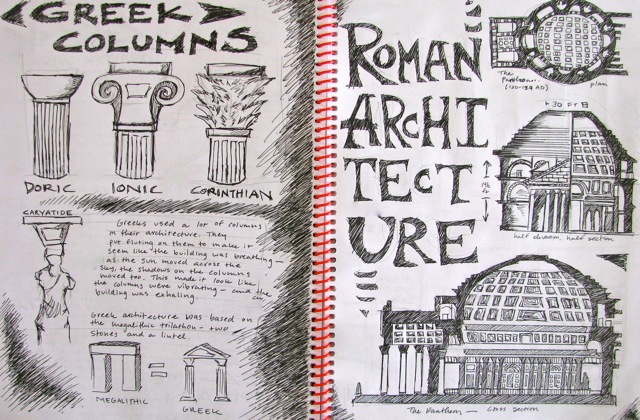 GREEK
COLUMNS
DORIC
IONIC
CORINTHIAN
CARYATIDE
Greeks used a lot of columns
in their architecture. They
put fluting on them to make it
seem like the building was breathing —
as the sun moved across the
sky, the shadows on the columns
moved too. This made it look like
the columns were vibrating – and the
building was exhaling.
Greek architecture was based on
the megalithic trilathon – two
stones and a lintel.
MEGALITHIC
=
GREEK
ROMAN
ARCHI
TECT
URE
The
Pantheon
plan
half elevation, half section
The Pantheon — cross section